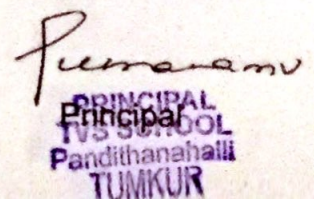 PRINCIPAL
Principal
TVS SCHOOL
Pandithanahalli
TUMKUR